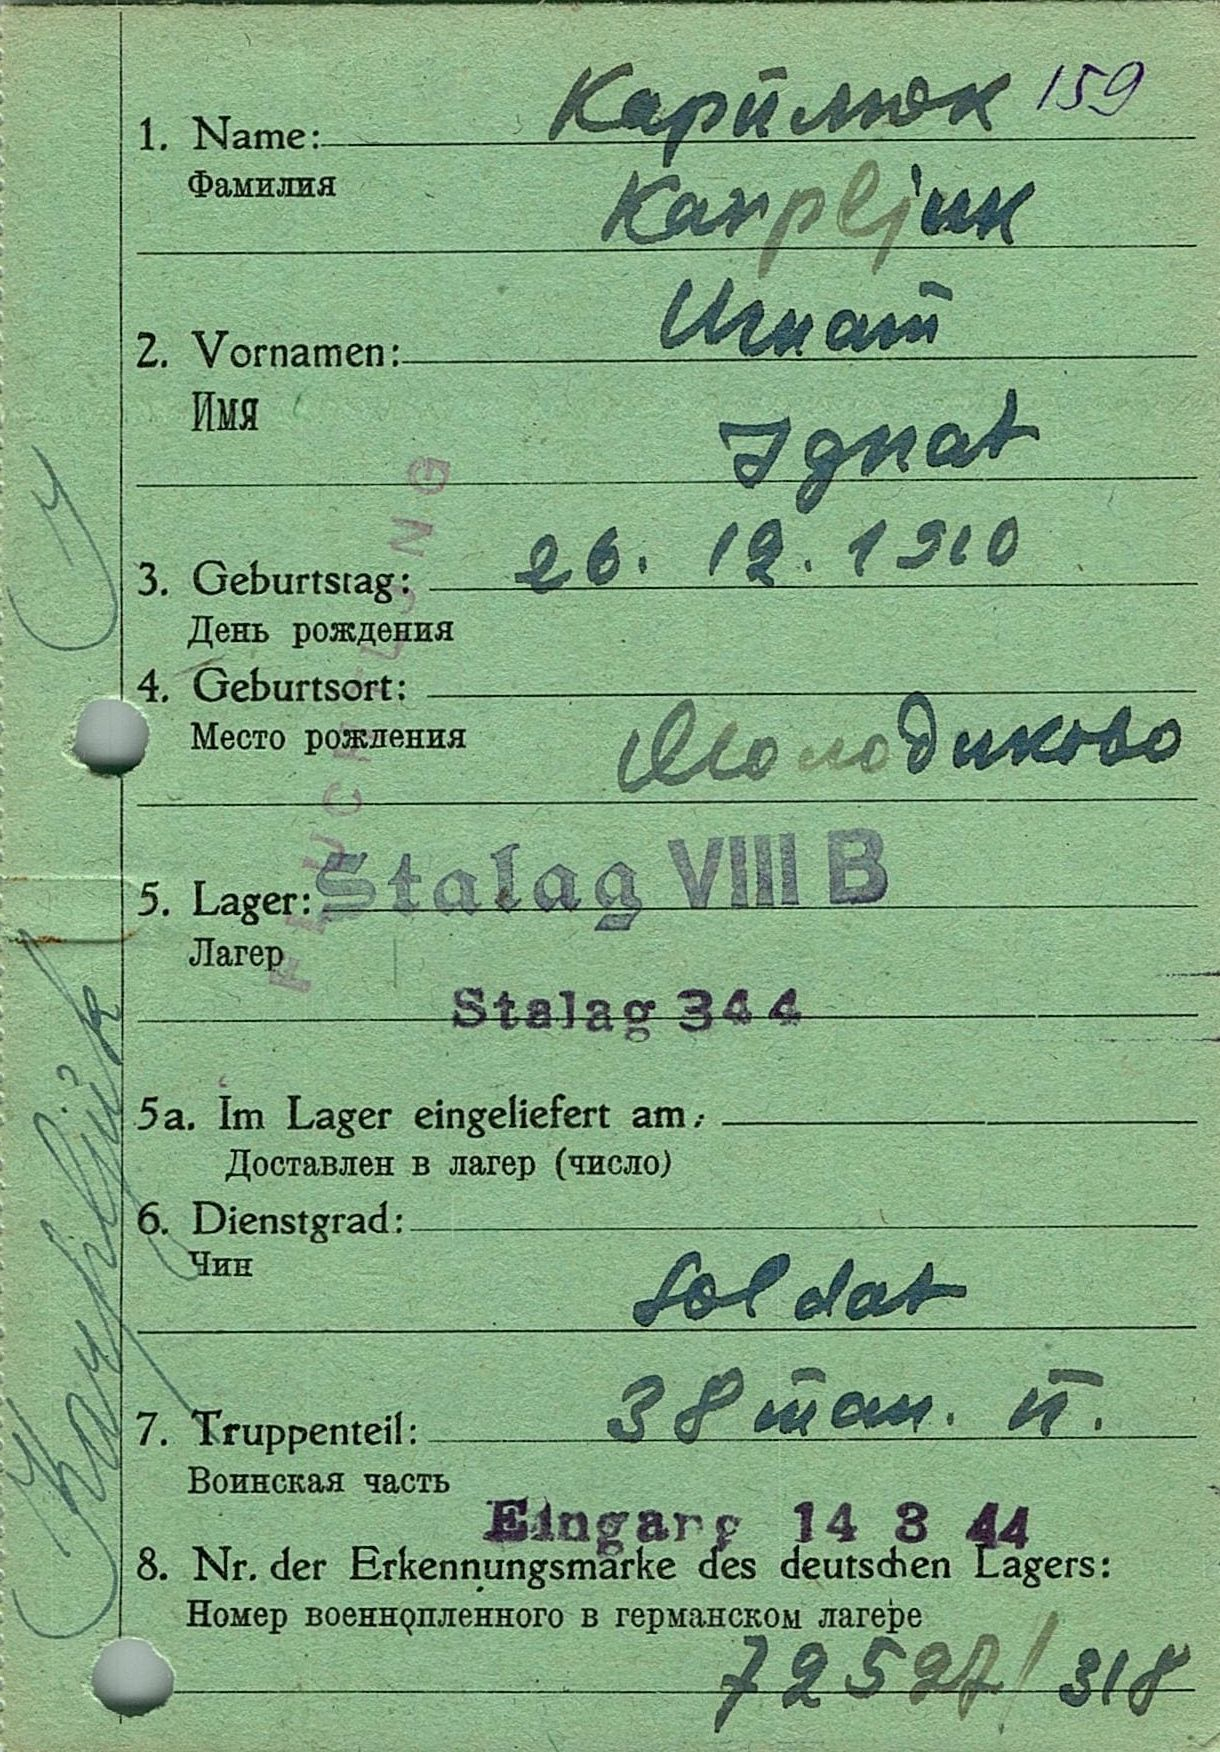 Карплюк 159
1. Name:
Фамилия
Karpljuk
Игнат
2. Vornamen:
Имя
Ignat
3. Geburtstag: 26. 12. 1910
День рождения
4. Geburtsort:
Место рождения
Молодиково
5. Lager: Stalag VIII B
Лагер
Stalag 344
5a. Im Lager eingeliefert am:
Доставлен в лагер (число)
6. Dienstgrad:
Чин
Soldat
7. Truppenteil: 38 тан. п.
Воинская часть
Eingang 14 3 44
8. Nr. der Erkennungsmarke des deutschen Lagers:
Номер военнопленного в германском лагере
72527/318
Karpljuk J